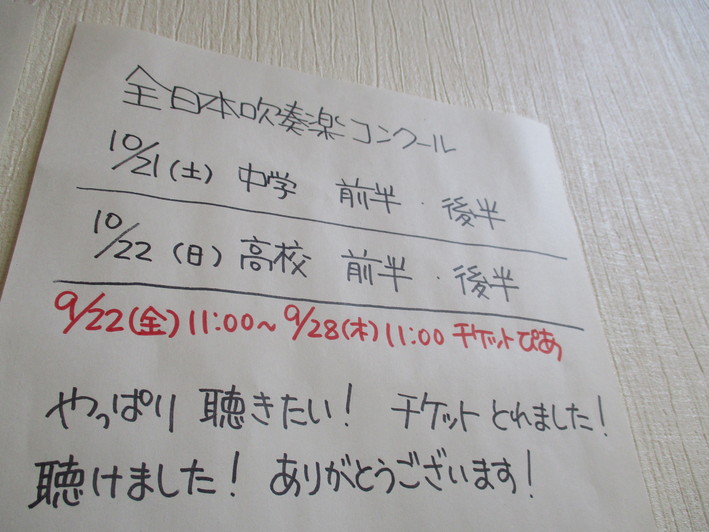 全日本吹奏楽コンクール
10/21(土) 中学 前半・後半
10/22(日) 高校 前半・後半
9/22(金)11:00~9/28(木)11:00 チケットぴあ
やっぱり 聴きたい! チケット とれました!
聴けました! ありがとうございます!